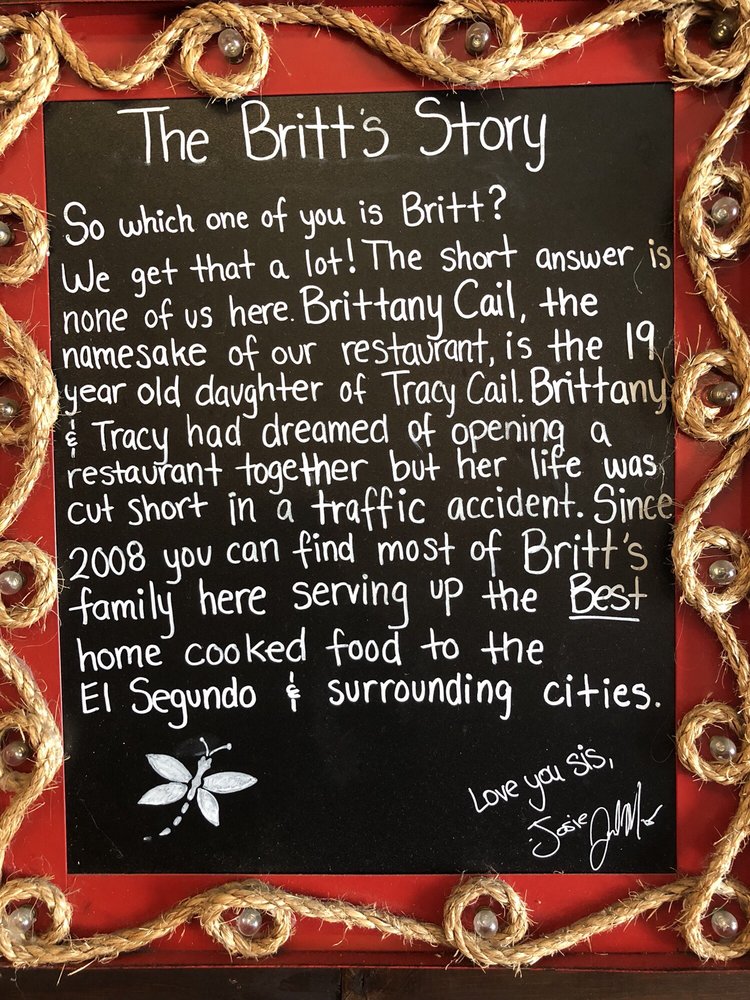 The Britt's Story
So which one of you is Britt?
We get that a lot! The short answer is
none of us here. Brittany Cail, the
namesake of our restaurant, is the 19
year old daughter of Tracy Cail. Brittany
& Tracy had dreamed of opening a
restaurant together but her life was
cut short in a traffic accident. Since
2008 you can find most of Britt's
family here serving up the Best
home cooked food to the
El Segundo & surrounding cities.
Love you sis,
Josie